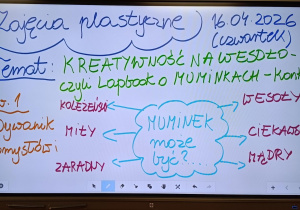 Zajęcia plastyczne
16.04.2026
(czwartek)
Temat: KREATYWNOŚĆ NA WESOŁO-
czyli Lapbook o MUMINKACH - Kont
w. 1
Dywanik
KOLEŻEŃSKI
MIŁY
ZARADNY
MUMINEK
może
być?...
WESOŁY
CIEKAW
MĄDRY